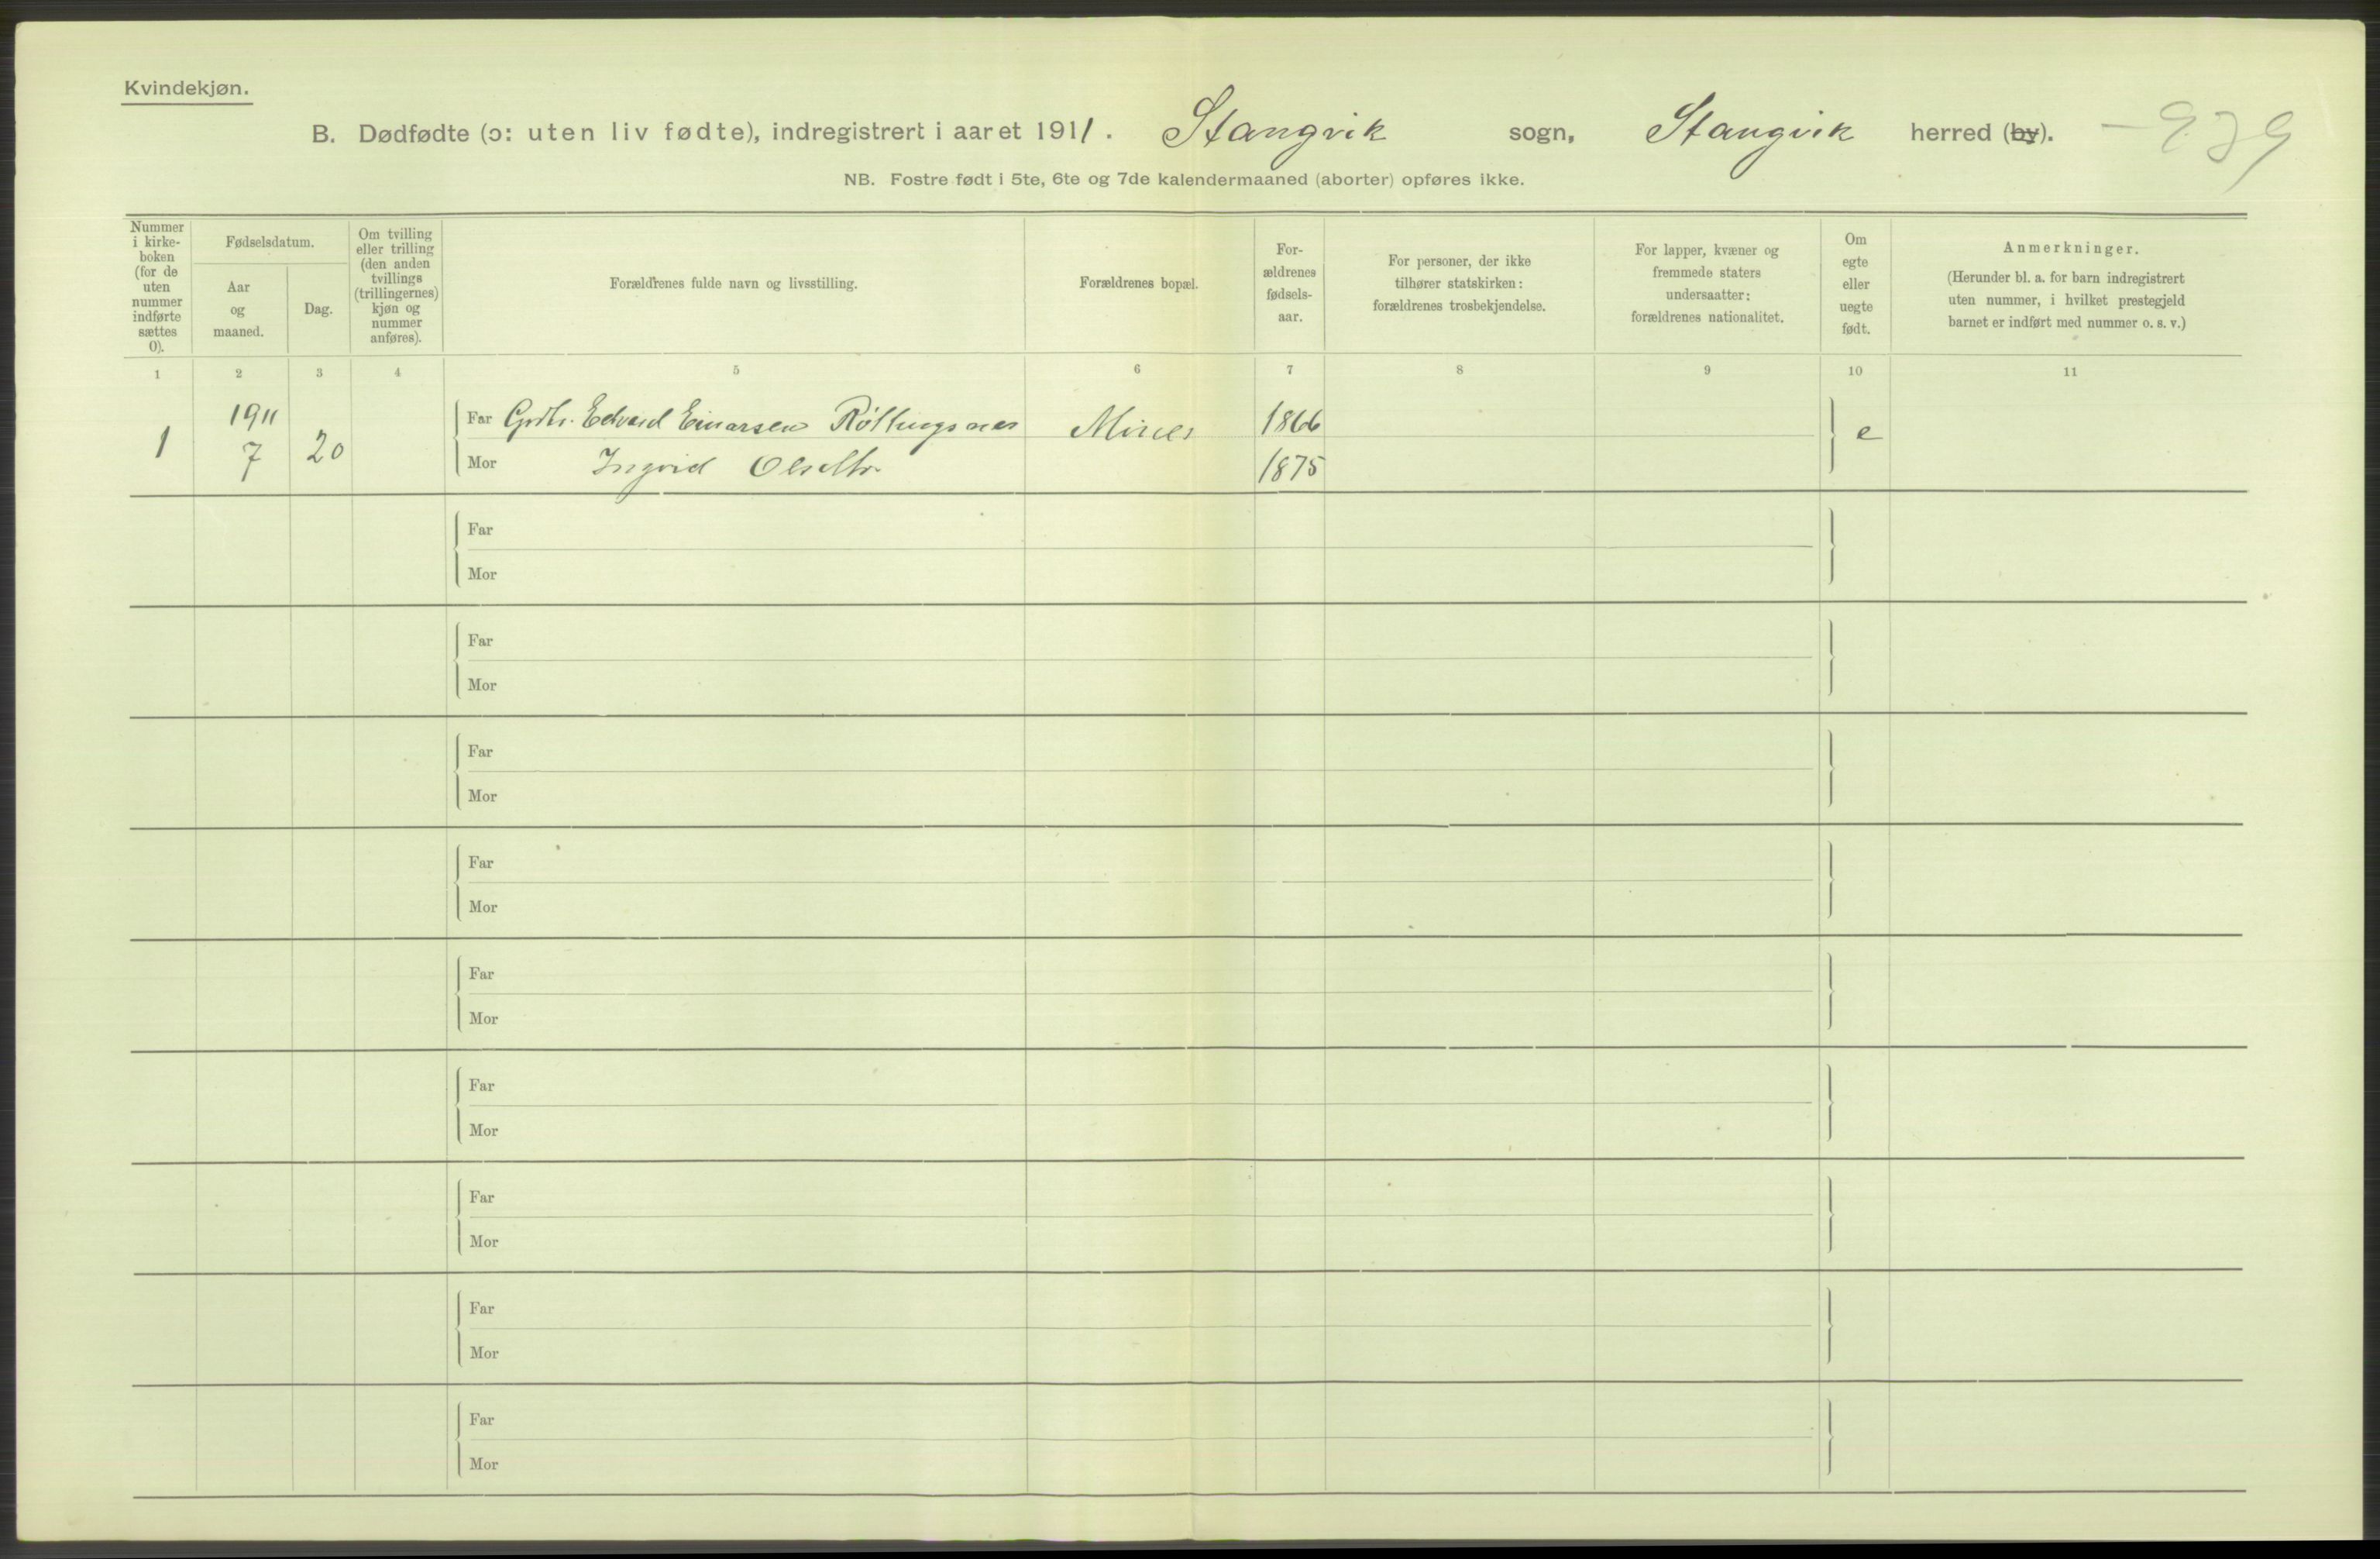 Kvindekjøn.
B. Dødfødte (ɔ: uten liv fødte), indregistrert i aaret 1911. Stangvik sogn, Stangvik herred (by).
NB. Fostre født i 5te, 6te og 7de kalendermaaned (aborter) opføres ikke.
Nummer i kirke-boken (for de uten nummer indførte sættes 0).
Fødselsdatum.
Aar og maaned.
Dag.
Om tvilling eller trilling (den anden tvillings (trillingernes) kjøn og nummer anføres).
Forældrenes fulde navn og livsstilling.
Forældrenes bopæl.
For-ældrenes fødsels-aar.
For personer, der ikke tilhører statskirken: forældrenes trosbekjendelse.
For lapper, kvæner og fremmede staters undersaatter: forældrenes nationalitet.
Om egte eller uegte født.
Anmerkninger.
(Herunder bl. a. for barn indregistrert uten nummer, i hvilket prestegjeld barnet er indført med nummer o. s. v.)
1 2 3 4 5 6 7 8 9 10 11
1 1911 7 20 Far Edvard Einarsen Røttingsnes 1866 e
Mor Ingvid 1875
Far
Mor
Far
Mor
Far
Mor
Far
Mor
Far
Mor
Far
Mor
Far
Mor
Far
Mor
Far
Mor